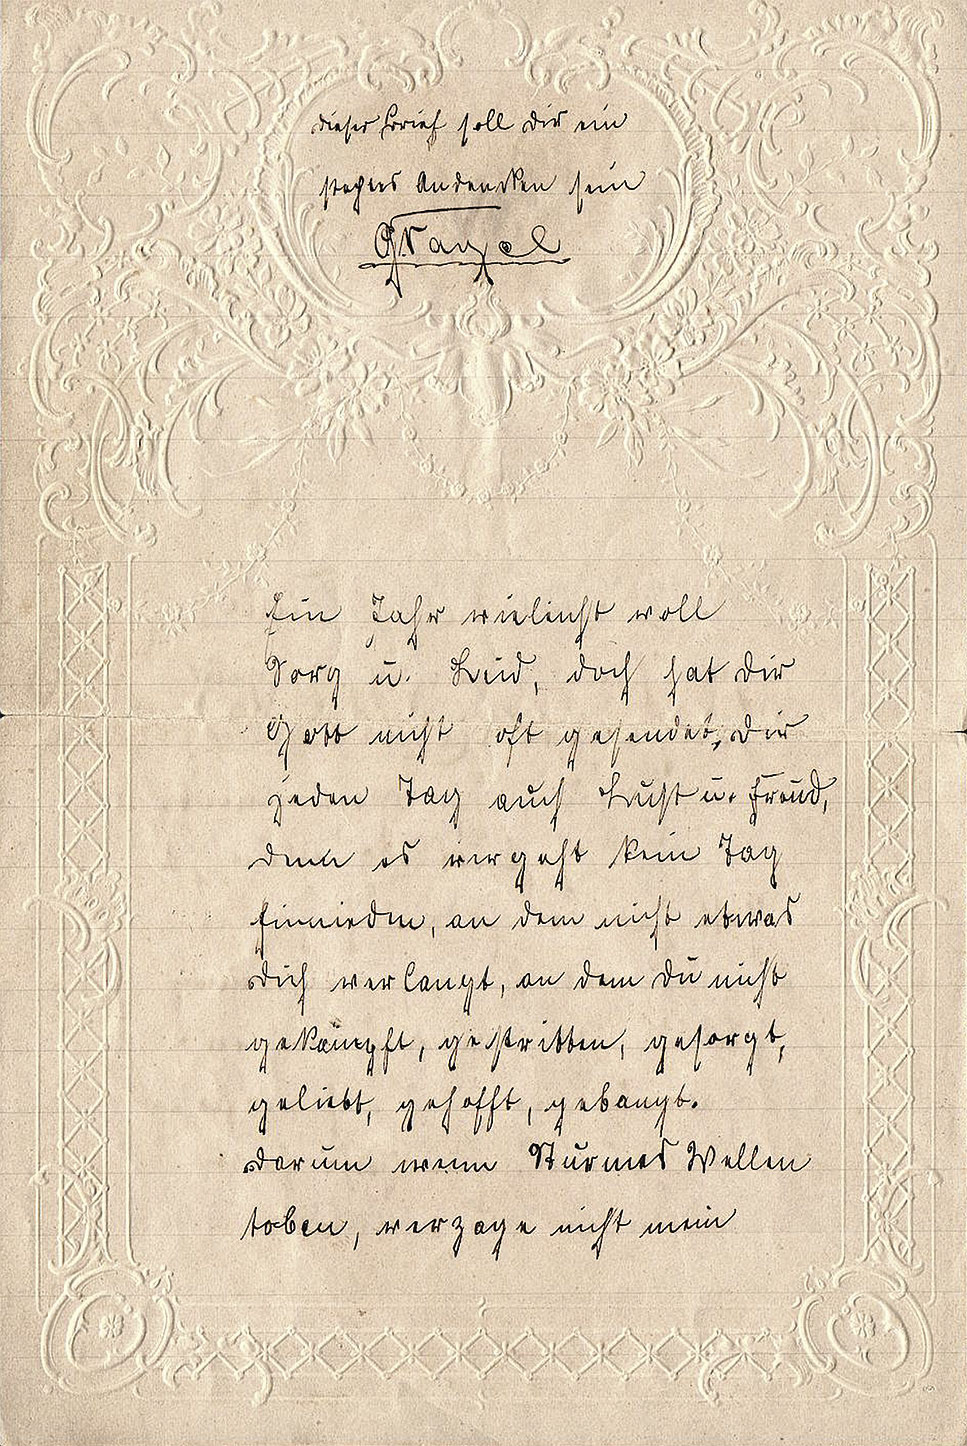 dieser Brief soll dir ein
stehtes Andencken sein
Ein Jahr vieleicht voll
Sorg u. Leid, doch hat dir
Gott nicht oft gesendet, dir
jeden Tag auch Lust u. Freud,
denn es vergeht kein Tag
hinieden, an dem nicht etwas
dich verlangt, an dem du nicht
gekämpft, gestritten, gesorgt,
geliebt, gehofft, gebangt.
darum wenn Sturmes Wellen
toben, verzage nicht mein